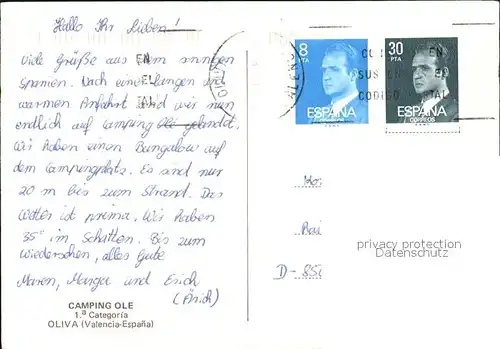 Hallo Ihr Lieben!
Viele Grüße aus dem sonnigen
Spanien. Nach einer langen und
warmen Anfahrt sind wir nun
endlich auf Camping Ole gelandet.
Wir haben einen Bungalow auf
dem Campingplatz. Es sind nur
20 m bis zum Strand. Das
Wetter ist prima. Wir haben
35° im Schatten. Bis zum
Wiedersehen, alles Gute
Maren, Marga und Erich
(Ärich)
CAMPING OLE
1.ª Categoría
OLIVA (Valencia-España)
8
PTA
ESPAÑA
30
PTA
ESPAÑA
CORREOS
EN
EL
EN
SUS EN
CODIGO
privacy protection
Datenschutz
D-85